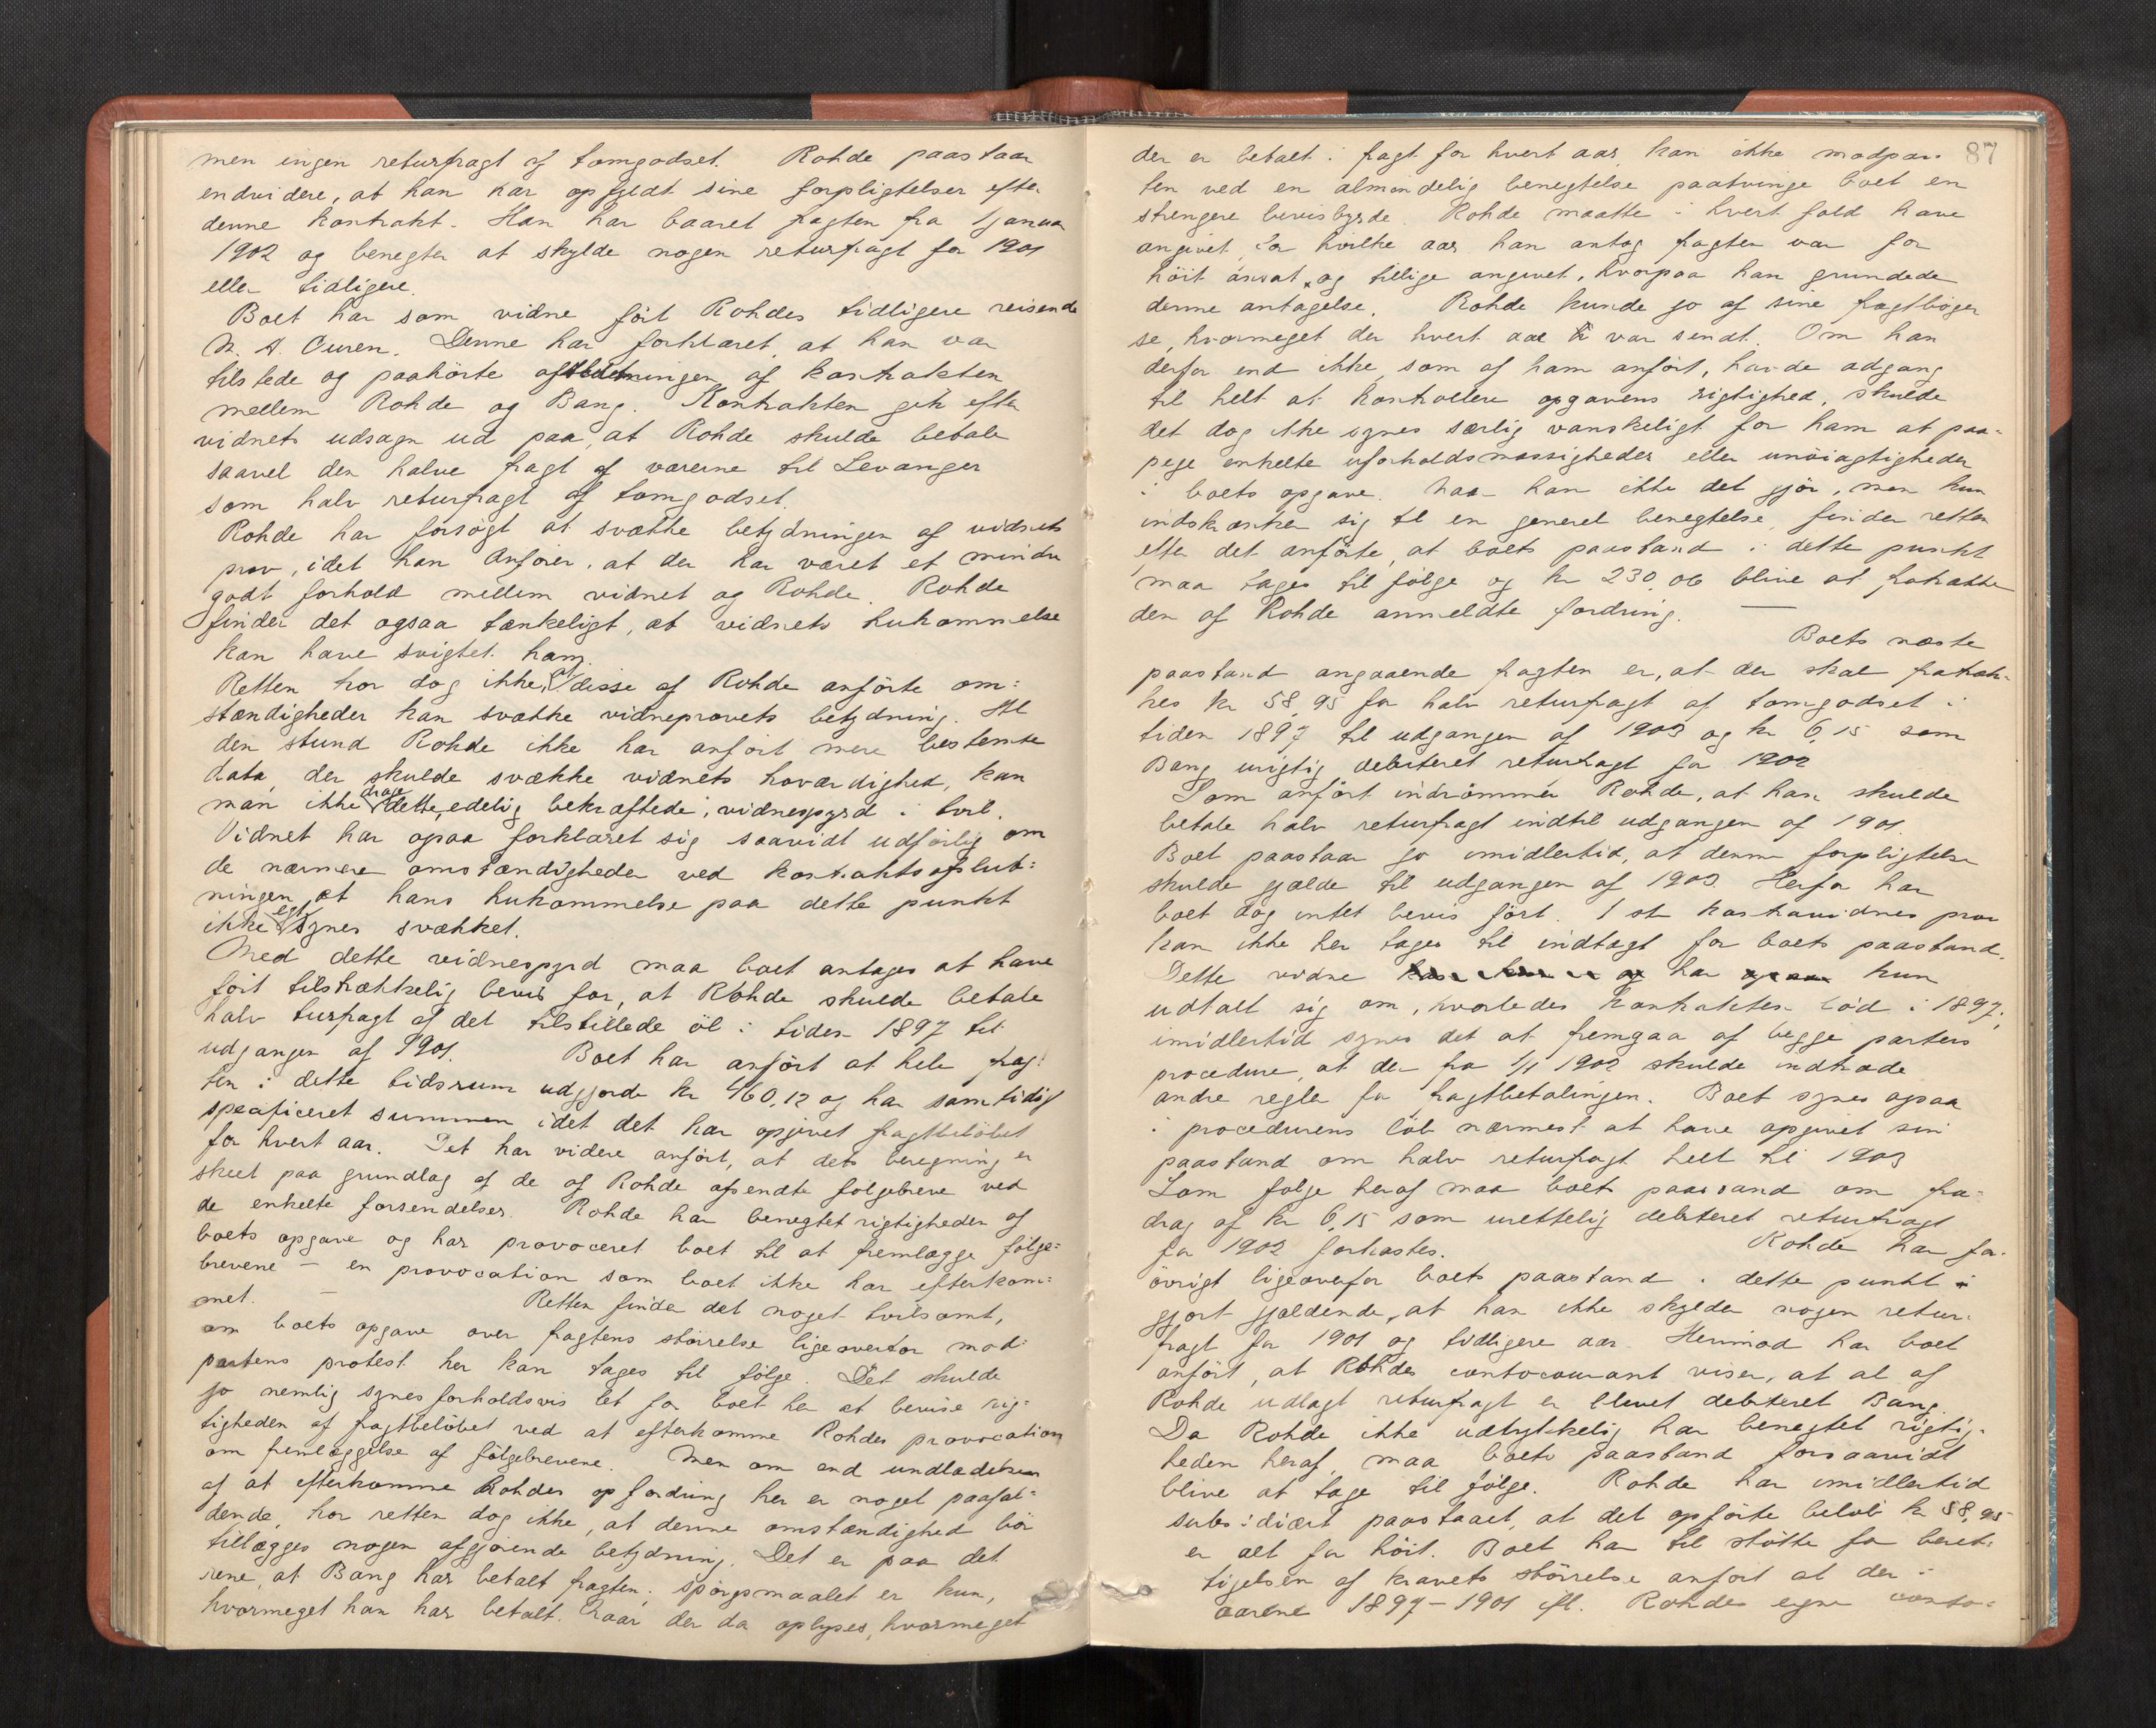 men ingen returfragt af tomgodset. Rohde paastaar
endvidere, at han har opfyldt sine forpligtelser efter
denne kontrakt. Han har baaret fragten fra 1 januar
1902 og benegter at skylde nogen returfragt for 1901
eller tidligere.
Boet har som vidne ført Rohdes tidligere reisende
N. A. Ouren. Denne har forklaret, at han var
tilstede og paahörte afslutningen af kontrakten
mellem Rohde og Bang. Kontrakten gik efter
vidnets udsagn ud paa, at Rohde skulde betale
saavel den halve fragt af varerne til Levanger
som halv returfragt af tomgodset.
Rohde har forsøgt at svække betydningen af vidnets
prov, idet han anfører, at der har været et mindre
godt forhold mellem vidnet og Rohde. Rohde
finder det ogsaa tænkeligt, at vidnets hukommelse
kan have svigtet ham.
Retten tror dog ikke, at disse af Rohde anførte om=
stændigheder kan svække vidneprovets betydning. Al
den stund Rohde ikke har anført mere bestemte
data, der skulde svække vidnets troværdighed, kan
man ikke drage dette, edelig bekræftede, vidnespyrd i tvil.
Vidnet har ogsaa forklaret sig saavidt udførlig om
de nærmere omstændigheder ved kontraktsafslut=
ningen, at hans hukommelse paa dette punkt
ikke synes svækket.
Med dette vidnespyrd maa boet antages at have
ført tilstrækkelig bevis for, at Rohde skulde betale
halv turfragt af det tilstillede øl i tiden 1897 til
udgangen af 1901. Boet har anført at hele frag=
ten i dette tidsrum udgjorde kr 460,12 og har samtidig
specificeret summen idet det har opgivet fragtbeløbet
for hvert aar. Det har videre anført, at dets beregning er
skeet paa grundlag af de af Rohde afsendte følgebreve ved
de enkelte forsendelser. Rohde har benegtet rigtigheden af
boets opgave og har provoceret boet til at fremlægge følge=
brevene – en provocation som boet ikke har efterkom=
met. – Retten finder det noget tvilsomt,
om boets opgave over fragtens størrelse ligeoverfor mod=
partens protest her kan tages til følge. Det skulde
jo nemlig synes forholdsvis let for boet her at bevise rig=
tigheden af fragtbeløbet ved at efterkomme Rohdes provocation
om fremlæggelse af følgebrevene. Men om end undladelsen
af at efterkomme Rohdes opfordring her er noget paafal=
dende, tror retten dog ikke, at denne omstændighed bør
tillægges nogen afgjørende betydning. Det er paa det
rene, at Bang har betalt fragten; spørgsmaalet er kun,
hvormeget han har betalt. Naar der da oplyses, hvormeget
87
der er betalt i fragt for hvert aar, kan ikke modpar=
ten ved en almindelig benegtelse paatvinge boet en
strengere bevisbyrde. Rohde maatte i hvert fald have
angivet, for hvilke aar han antog fragten var for
høit ansat, og tillige angivet, hvorpaa han grundede
denne antagelse. Rohde kunde jo af sine fragtbøger
se, hvormeget der hvert aar var sendt. Om han
derfor end ikke, som af ham anført, havde adgang
til helt at kontrollere opgavens rigtighed, skulde
det dog ikke synes særlig vanskeligt for ham at paa=
pege enkelte uforholdsmæssigheder eller unøiagtigheder
i boets opgave. Naar han ikke det gjør, men kun
indskrænker sig til en generel benegtelse, finder retten
efter det anførte, at boets paastand i dette punkt
maa tages til følge og kr 230,06 blive at fratrække
den af Rohde anmeldte fordring. —
Boets næste
paastand angaaende fragten er, at der skal fratræk=
kes kr 58,95 for halv returfragt af tomgodset i
tiden 1897 til udgangen af 1903 og kr 6,15 som
Bang urigtig debiteret returfragt for 1902
Som anført indrømmer Rohde, at han skulde
betale halv returfragt indtil udgangen af 1901.
Boet paastaar jo imidlertid, at denne forpligtelse
skulde gjælde til udgangen af 1903. Herfor har
boet dog intet bevis ført. 1ste kontravidnes prov
kan ikke her tages til indtægt for boets paastand.
Dette vidne har kun
udtalt sig om, hvorledes kontrakten lød i 1897;
imidlertid synes det at fremgaa af begge parters
procedure, at der fra 1/1 1902 skulde indtræde
andre regler for fragtbetalingen. Boet synes ogsaa
i procedurens løb nærmest at have opgivet sin
paastand om halv returfragt helt til 1903
Som følge heraf maa boets paastand om fra=
drag af kr 6,15 som urettelig debiteret returfragt
for 1902 forkastes. Rohde har for=
øvrigt ligeoverfor boets paastand i dette punkt
gjort gjældende, at han ikke skylder nogen retur=
fragt for 1901 og tidligere aar. Herimod har boet
anført, at Rohdes contocourant viser, at al af
Rohde udlagt returfragt er blevet debiteret Bang.
Da Rohde ikke udtrykkelig har benegtet rigtig=
heden heraf, maa boets paastand forsaavidt
blive at tage til følge. Rohde har imidlertid
subsidiært paastaaet, at det opførte beløb kr 58,95
er alt for høit. Boet har til støtte for beret=
tigelsen af kravets størrelse anført at der i
aarene 1897–1901 ifl. Rohdes egne conto=